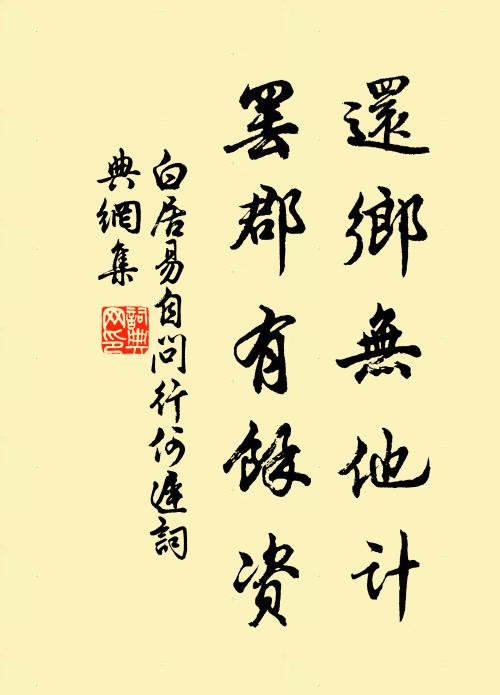 還鄉無他計
罷郡有餘資
白居易自問行何遲詞
典網集
詞典
网印